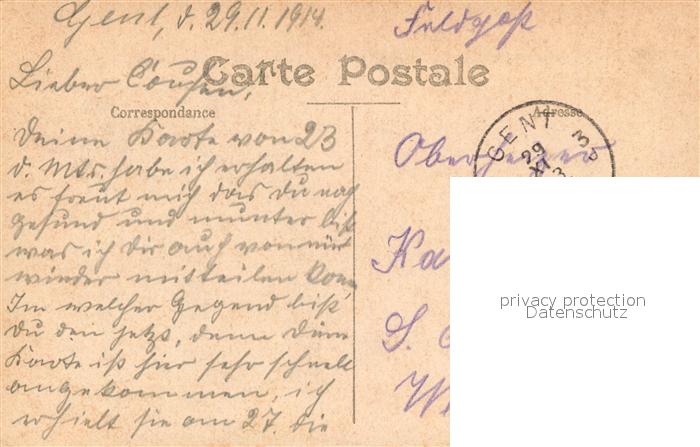 Gent, d. 29.11.1914.
Feldpost
Lieber Cousen,
Carte Postale
Correspondance
Adresse
Deine Karte von 23
d. Mts. habe ich erhalten
es freut mich das du noch
gesund und munter bist
was ich dir auch von mir
wieder mitteilen kann
Im welcher Gegend bist
du den jetzt, denn deine
Karte ist hier sehr schnell
angekommen, ich
erhielt sie am 27. die
GENT
29
XI
Oberheizer
Ka
S.
W
privacy protection
Datenschutz